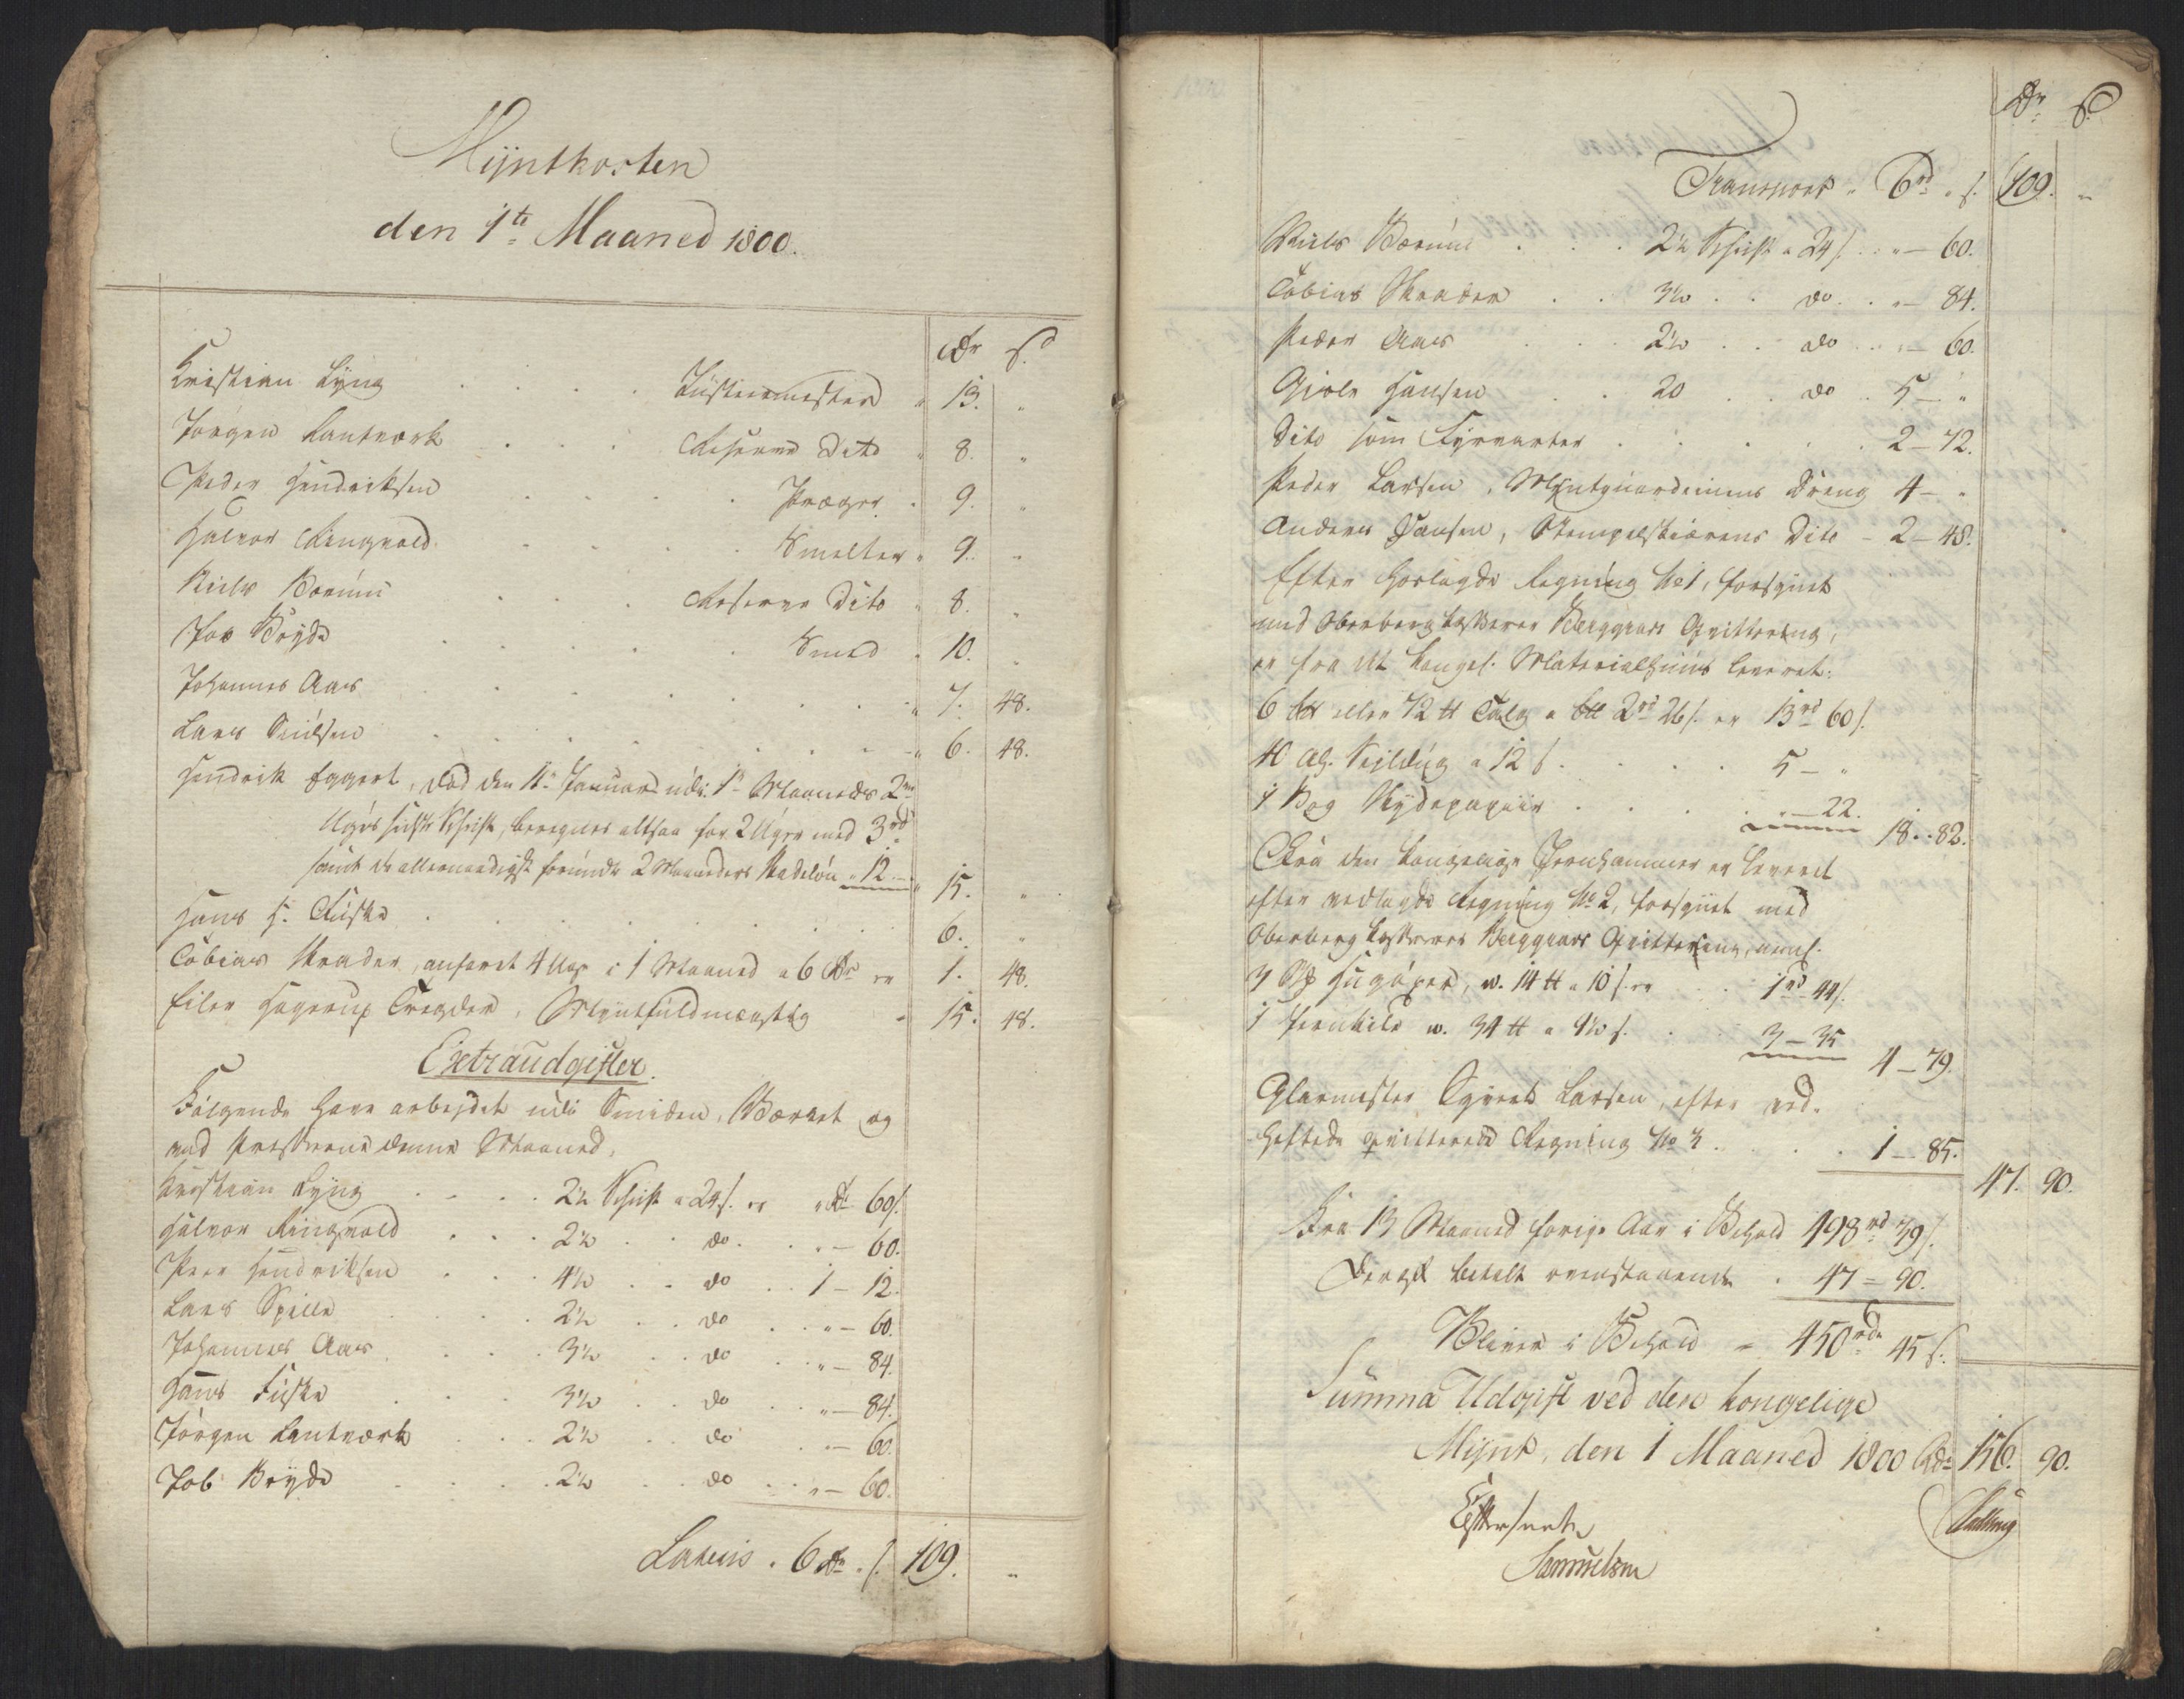 Myntkosten
den 1te Maaned 1800.
Rdr s.
Kristian Lyng . . . . Justeermester " 13. "
Jørgen Lantværk . . . Reserve Dito " 8. "
Peder Hendriksen . . . . Præger " 9. "
Halvor Ringvold . . . . Smelter " 9. "
Niels Bærums . . . Reserve Dito " 8. "
Job Bryde . . . . Smed " 10. "
Johannes Aas . . . . " 7. 48.
Lars Nielsen . . . . " 6. 48.
Hendrik Eggert, død den 11te Januar udi 1te Maaneds 2den
Uges sidste Schift, beregnes altsaa for 2 Uger med 3rd
samt de allernaadigst forundte 2 Maaneders Naadeløn " 12 – " 15. "
Hans H. Fiiske . . . . 6. "
Tobias Strader, anført 4 Uger i 1 Maaned a 6 Rdr er 1. 48.
Eiler Hagerup Tregder, Myntfuldmægtig " 15. 48.
Extraudgifter.
Følgende have arbejdet udi Smidien, Værket og
ved Presserne denne Maaned,
Kristian Lyng . . . . 2½ Schift a 24 s. er " Rd 60 s.
Halvor Ringvold . . . 2½ . . do . . " – 60.
Peder Hendriksen . . . 4½ . . do . . 1 – 12.
Lars Spille . . . . 2½ . . do . . " – 60.
Johannes Aas . . . 3½ . . do . . " – 84.
Hans Fiiske . . . 3½ . . do . . " – 84.
Jørgen Lantværk . . . 2½ . . do . . – 60.
Job Bryde . . . . 2½ . . do . . " – 60.
Lateris . 6 Rdr . s. 109. "
Rdr s.
Transport " 6rd " s. 109. "
Niels Bærums . . . 2½ Schift a 24 s. . " – 60.
Tobias Strader . . 3½ . . do . . " – 84.
Peder Aas . . . 2½ . . do . . " – 60.
Gjole Hansen . . 20 . . do . 5 – "
Dito som Fyrvarter . . . . . 2 – 72.
Peder Larsen, Myntguardeinens Dreng 4 – "
Anders Hansen, Stempelskiærerens Dito – 2 – 48.
Efter hoslagde Regning No 1, forsynet
med Oberbergkasserer Berggrars Qvittering,
er fra det kongel. Materialhuus leveret:
6 B℔ eller 72 ℔ Talg a B℔ 2rd 26 s. er 13rd 60 s.
40 Al. Sejldug a 12 s. . . . . 5 – "
1 Bog Skydepapiir . . . . " – 22. 18 . 82.
Fra den kongelige Jernhammer er leveret
efter vedlagde Regning No 2, forsynet med
Oberbergkasserer Berggrars Qvittering, neml.
3 St. , w. 14 ℔ a 10 s. er . . 1rd 44 s.
1 w. 34 ℔ a 9½ s. . . 3 – 35 4 – 79.
Glarmester Sywert Larsen, efter ved-
heftede qvitterede Regning No 3 . . . . 1 – 85.
47. 90.
Fra 13 Maaned forrige Aar i Behold 498rd 39 s.
Deraf betalt ovenstaaende . 47 = 90.
Bliver i Behold – 450rd 45 s.
Summa Udgift ved den kongelige
Mynt, den 1 Maaned 1800 Rdr 156. 90.
Samuelsen